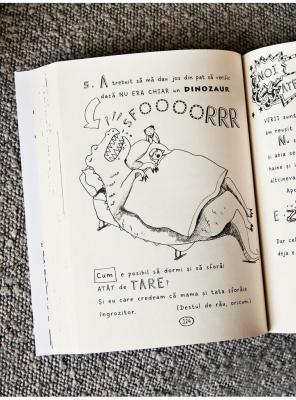 5. A trebuit să mă dau jos din pat să verific
dacă NU ERA CHIAR un DINOZAUR
SFOOOORRR
Cum e posibil să dormi și să sforăi
ATÂT de TARE?
Și eu care credeam că mama și tata sforăie
îngrozitor. (Destul de rău, oricum.)
224
NOI
VERII sunt
am reușit
și abia se
haine și
altcineva
Ap
E
Dar cel
deja e